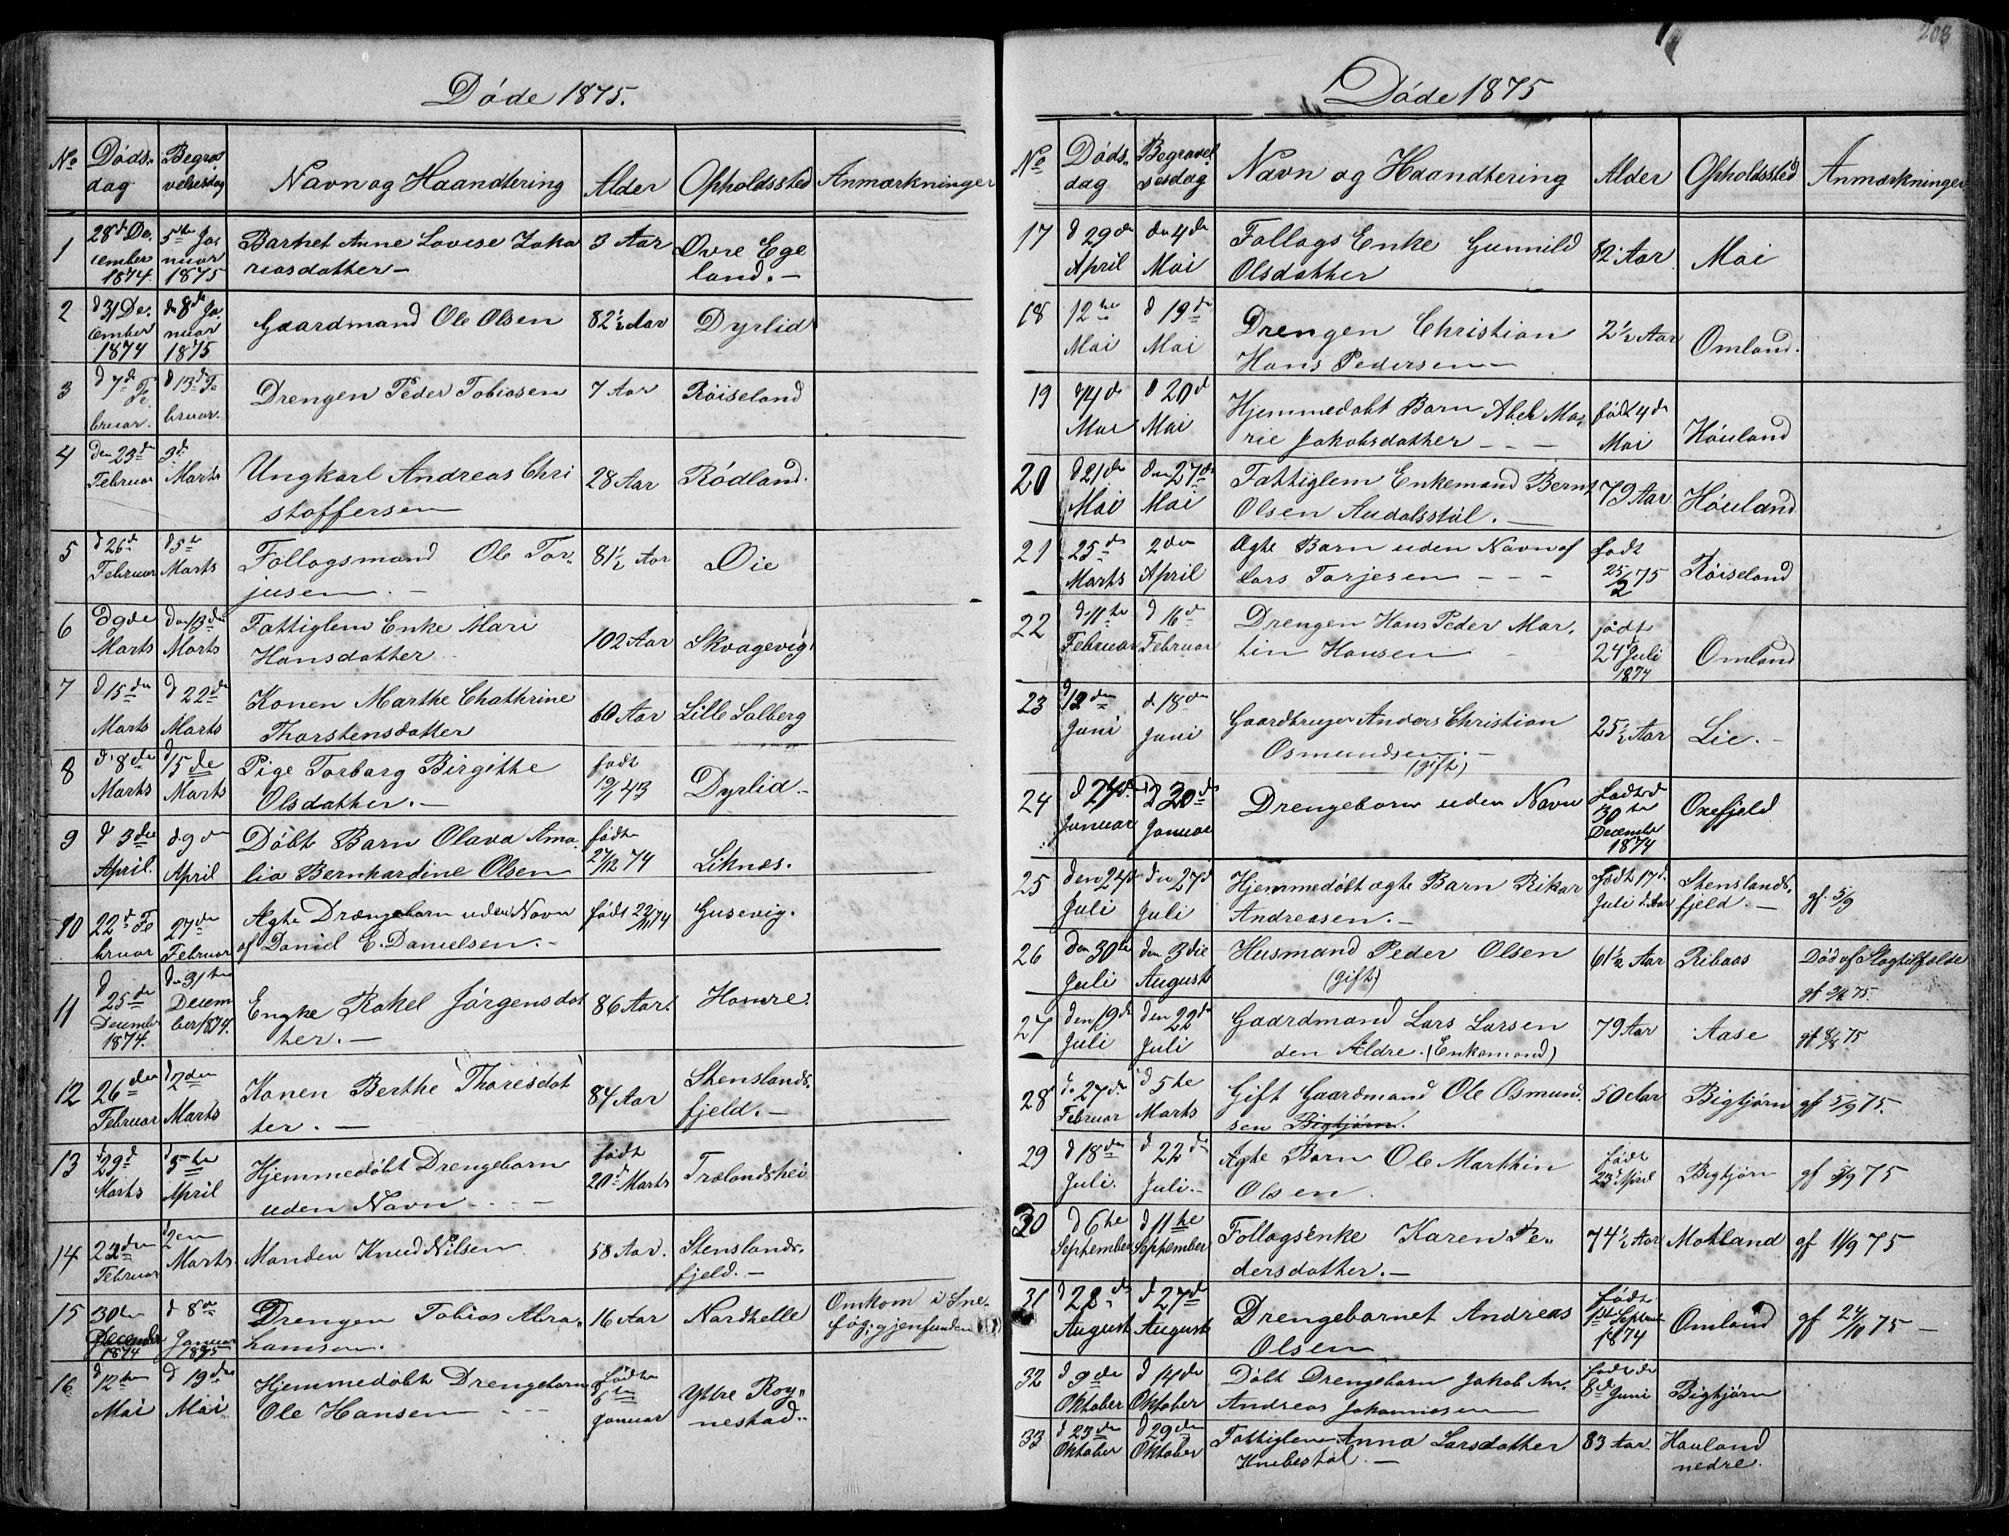 Døde 1875.
No Døds- dag Begravelsesdag Navn og Haandtering Alder Opholdssted Anmærkninger
1 28d December 1874 5te Januar 1875 Barnet Anne Lovise Zakariasdatter - 3 Aar Øvre Egeland. -
2 d 31 December 1874 d 8de Januar 1875 Gaardmand Ole Olsen 82½ Aar Dyrlid
3 d 7de Februar. d 13de Februar. Drengen Peder Tobiasen 7 Aar Røiseland
4 Den 23de Februar 3de Marts Ungkarl Andreas Christoffersen 28 Aar Rødland.
5 d 26d Februar d 5te Marts Follogsmand Ole Torjusen. - 81½ Aar Øie
6 D 9de Marts den 13de Marts Fattiglem Enke Mari Hansdatter 102 Aar Skvagevig
7 d 15de Marts d 22de Marts Konen Marthe Chathrine Thorstensdatter 60 Aar Lille Salberg
8 d. 8de Marts d 15de Marts Pige Torborg Birgitte Olsdatter. - født 12/1 43 Dyrlid. -
9 d 3die April. d. 9de April Døbt Barn Olava Amalia Bernhardine Olsen født 27/12 74 Liknæs.
10 22d Februar 27de Februar Ægte Drængebarn uden Navn af Daniel E. Danielsen. - født 22/11 74 Gusevig.
11 d 25de December 1874. den 31te December 1874. Enke Rakel Jørgensdatter. - 86 Aar. Homre.
12 26den Februar d 2den Marts Konen Berthe Thoresdatter. - 84 Aar Stenslandsfjeld. -
13 d 29d Marts d 5te April Hjemmedøbt Drengebarn uden Navn - - - født 20d Marts Trælandshei
14 22den Februar d 2en Marts Manden Knud Nilsen 58 Aar. Stenslandsfjeld. -
15 30de December 1874 d 8de Januar 1875 Drengen Tobias Abrahamsen. 16 Aar Nordhelle Omkom i Snefog, gjenfunden
16 d 12te Mai d 19de Mai Hjemmedøbt Drengebarn Ole Hansen - - - født 6te Januar Yttre Røynestad.
203
Døde 1875
No Døds- dag Begravelsesdag Navn og Haandtering Alder Opholdssted Anmærkninger
17 d 29de April den 4de Mai Follogs Enke Gunnild Olsdatter 82 Aar Moi
18 12te Mai d 19de Mai Drengen Christian Hans Pedersen - 2½ Aar Omland.
19 d 14de Mai d 20d Mai Hjemmedøbt Barn Abel Marie Jakobsdatter - - - født 4de Mai Høuland
20 d 21de Mai den 27de Mai Fattiglem Enkemand Bernt Olsen Audalsstøl. - 79 Aar Høuland
21 25de Marts 2den April Ægte Barn uden Navn af Lars Tarjesen - - - født 25/2 75 Røiseland
22 d. 11te Februar d 16d Februar Drengen Hans Peder Martin Hansen - født 24 Juli 1874 Omland
23 d 12den Juni d 18den Juni Gaardbruger Anders Christian Osmundsen. - (gift) 25½ Aar Lie. -
24 d 24d. Januar d 30de Januar Drengebarn uden Navn født d 30te December 1874 Oxefjeld
25 den 24d Juli den 27d Juli Hjemmedøbt ægte Barn Rikar Andreasen. - født 17d. Juli d. Aar Stenslandsfjeld. - gf. 5/9
26 Den 30te Juli den 3die August Husmand Peder Olsen (gift) 61½ Aar Ribaas Død af Slagtilfælde gf 75.
27 den 19de Juli den 22de Juli Gaardmand Lars Larsen den Ældre. (Enkemand) 79 Aar Aase gf 8/8 75
28 d. 27d. Februar d 5te Marts Gift Gaardmand Ole Osmundsen Bigtjørn. 50 Aar Bigtjørn gf 5/9 75.
29 d 18de Juli. d 22de Juli. - Ægte Barn Ole Marthin Olsen. født 23d April Bigtjørn gf 5/9 75
30 d 6te September d 11te September Follogsenke Karen Pedersdatter. - 74½ Aar Motland gf 11/9 75
31 d 28de August d 27de August Drengebarnet Andreas Olsen født 1st Septemr 1874 Omland gf 24/10 75 -
32 d 9de Oktober d 14de Oktober Døbt Drengebarn Jakob An. Andreas Johannesen født de 8de Juni Bigtjørn
33 d 23de Oktober d 29de Oktober Fattiglem Anna Larsdatter Knibestøl. - 83 Aar. Høuland nedre.